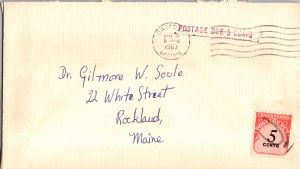 POSTAGE DUE 5 CENTS
1963
Dr. Gilmore W. Soule
22 White Street
Rockland,
Maine
5
CENTS